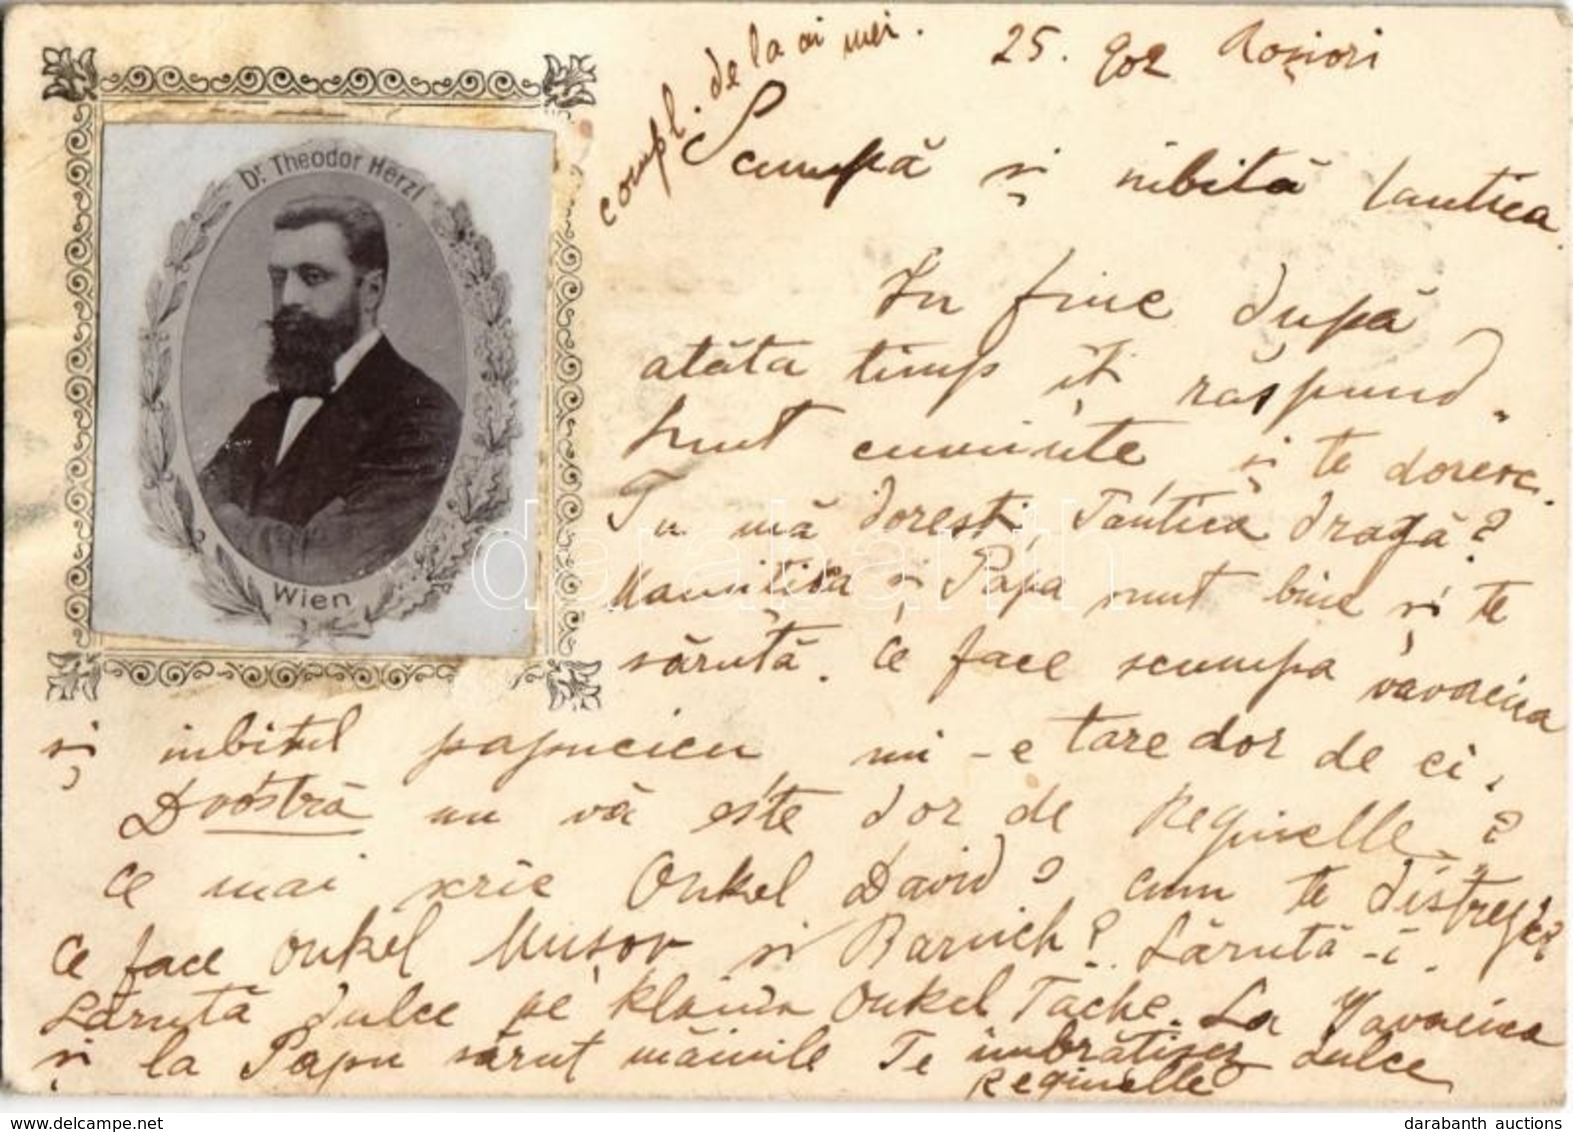 compl. de la ai mei.
25. 902 Roșiori
Scumpă și iubită Tantica.
Dr. Theodor Herzl
Wien
In fine după
atâta timp îți răspund.
Sunt cuminte și te doresc.
Tu mă dorești, Tantica dragă?
Mamitica și Papa sunt bine și te
sărută. Ce face scumpa vavaeica
și iubitul papucicu mi-e tare dor de ei.
Dvostră nu vă este dor de Reginelle?
Ce mai scrie Onkel David? cum te distrezi?
Ce face Onkel Mușov și Baruch? Sărută-i.
Sărută dulce pe Onkel Tache. La Vavaeica
și la Papu sărut mâinile Te îmbrățișez dulce
Reginelle
darabanth
darabanth auctions